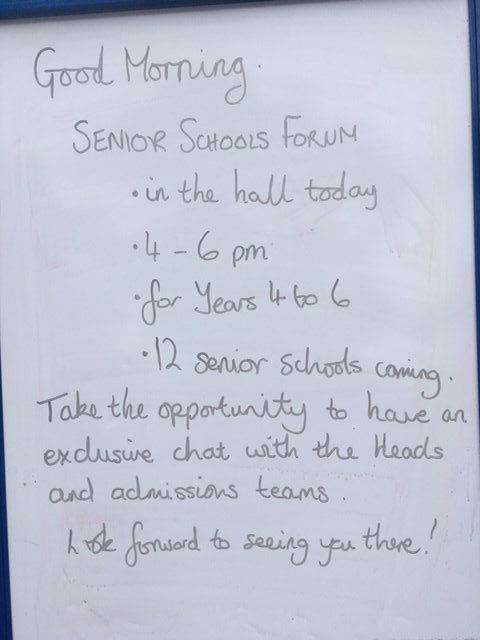 Good Morning.
SENIOR SCHOOLS FORUM
• in the hall today
• 4 – 6 pm
• for Years 4 to 6
• 12 senior schools coming.
Take the opportunity to have an
exclusive chat with the Heads
and admissions teams.
Look forward to seeing you there!